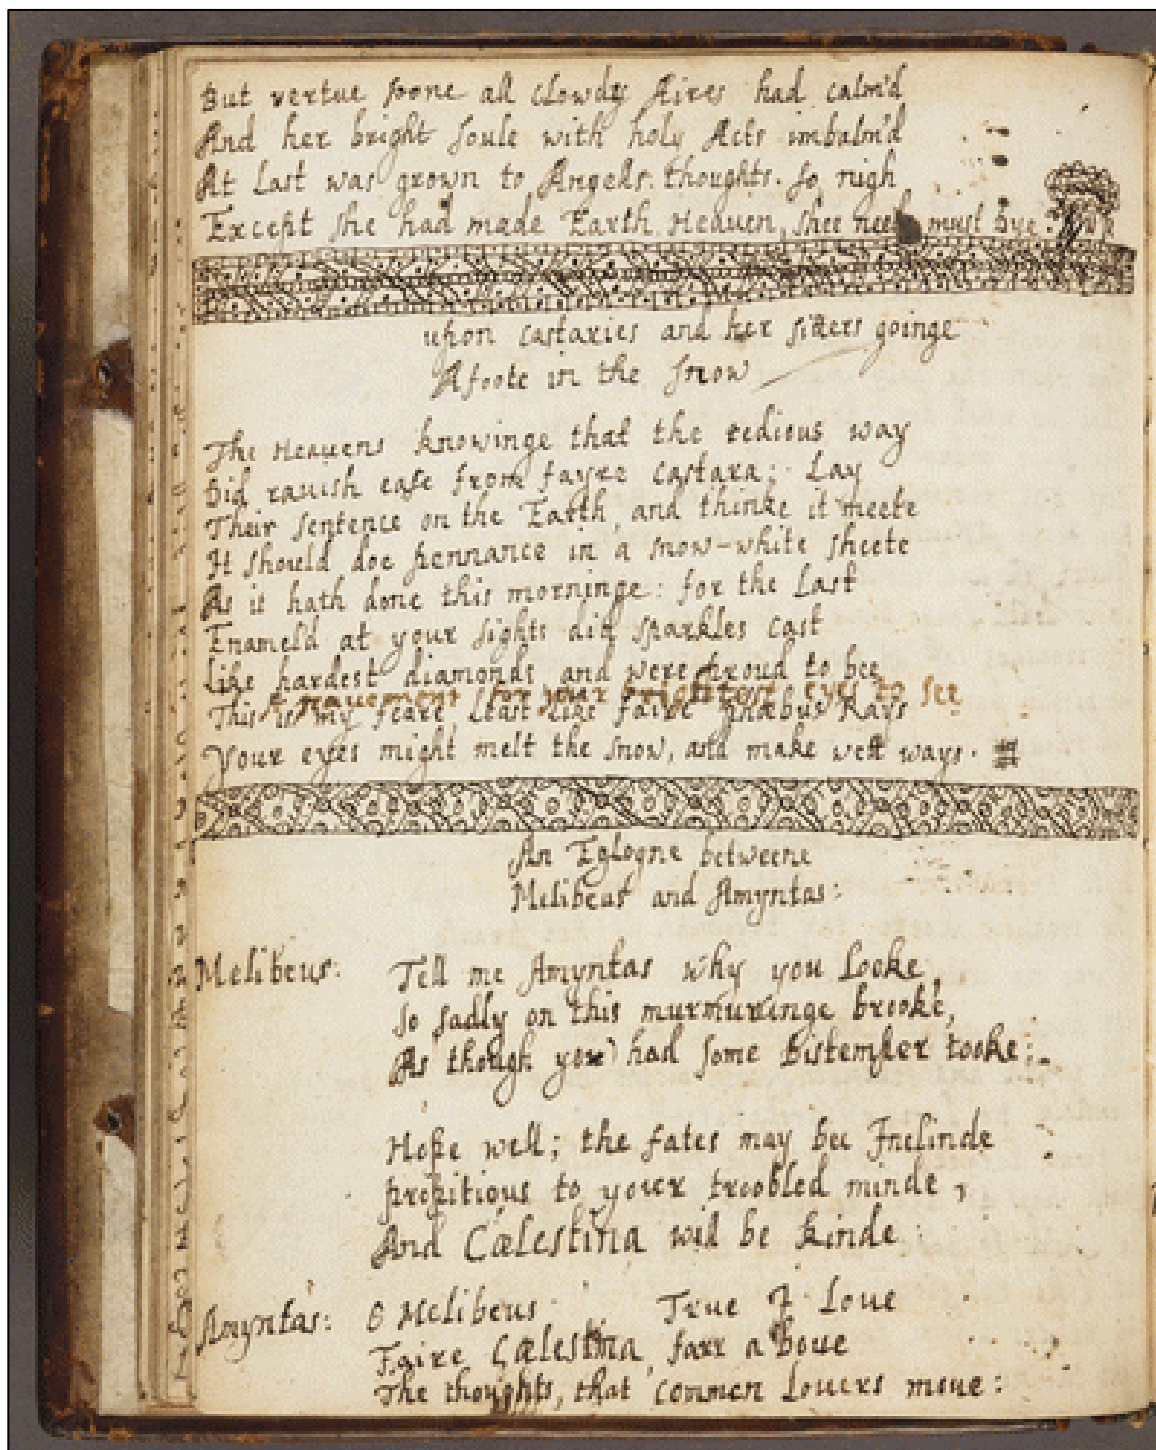 But vertue soone all clowdy Aires had calm'd
And her bright soule with holy Acts imbalm'd
At last was grown to Angells thoughts. so nigh
Except she had made Earth Heauen, shee must dye:
upon castaries and her sisters goinge
Afoote in the snow
The Heauens knowinge that the tedious way
Did rauish ease from fayre castara; Lay
Their sentence on the Earth, and thinke it meete
It should doe pennance in a snow-white sheete
As it hath done this morninge: for the Last
Enameld at your sights did sparkles cast
like hardest diamonds and were proud to bee
A pauement for your brightest eyes to see
This is my feare Least like faire phœbus Rays
Your eyes might melt the snow, and make wett ways.
An Eglogne betweene
Melibeus and Amyntas:
Melibeus: Tell me Amyntas why you Looke
So sadly on this murmuringe brooke,
As though you had some Distemper tooke:
Hope well; the fates may bee Inclinde
propitious to yower troobled minde,
And Cælestina will be kinde
Amyntas: O Melibeus True I Loue
Faire Cælestina farr aboue
The thoughts, that commen Louers moue: